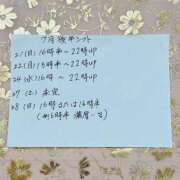 7月後半シフト
21(日) 16時〜22時up
22(月) 15時半〜22時up
24(水) 16時〜22時up
27(土) 未定
28(日) 15時または16時半